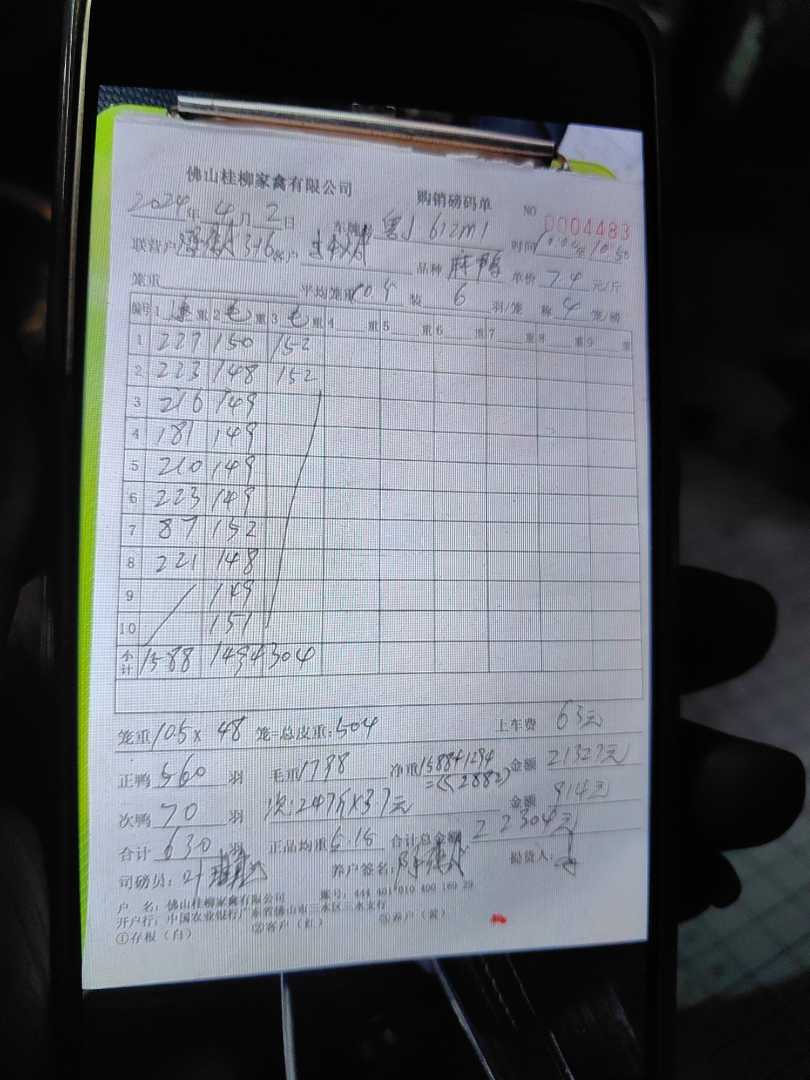 佛山桂柳家禽有限公司 购销磅码单
NO 0004483
2024年4月2日 车牌 粤J 612M1 时间 至10:50
联营户 316 客户
品种 麻鸭 单价 7.4 元/斤
笼重 平均笼重 10.4 装 6 羽/笼 称 4 笼/磅
编号 1 重 2 毛 重 3 毛 重 4 重 5 重 6 重 7 重 8 重 9 重
1 227 150 152
2 223 148 152
3 216 149
4 181 149
5 210 149
6 223 149
7 87 152
8 221 148
9 149
10 151
小计 1588 1494 304
笼重 10.5 x 48 笼=总皮重: 504 上车费 63元
正鸭 560 羽 毛重 1798 净重 1588+1294 金额 21327元
=(2882)
次鸭 70 羽 次: 247斤x3.7元 金额 914元
合计 630 羽 正品均重 5.15 合计总金额 22304元
司磅员: 叶 养户签名: 陈 提货人:
户 名: 佛山桂柳家禽有限公司 账号: 444 401 010 400 169 29
开户行: 中国农业银行广东省佛山市三水区三水支行
①存根（白） ②客户（红） ③养户（黄）